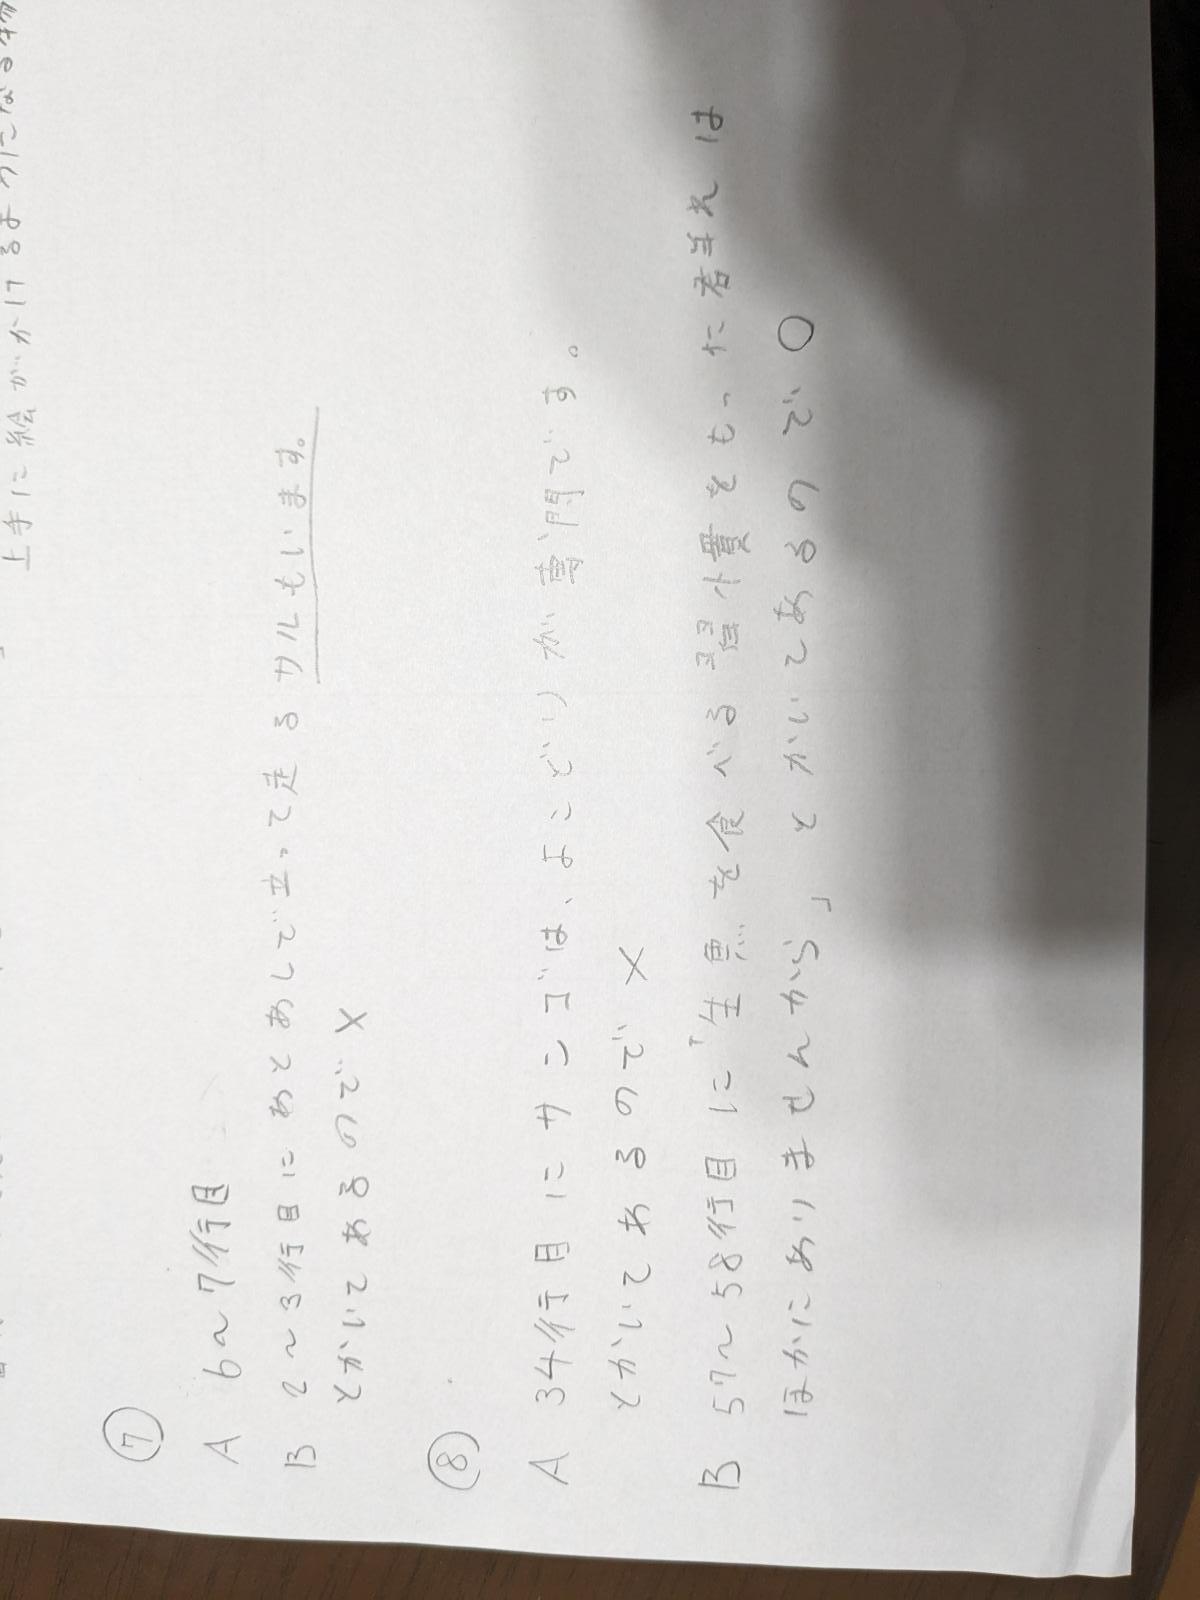 上手に絵がかけるようになる
⑦
A 6~7行目
B 2~3行目にあとあしで立って走るサルもいます。
とかいてあるので×
⑧
A 34行目にサンゴは、よこどりが専門です。
とかいてあるので×
B 57~58行目に「生魚を食べる習慣をもった君われは
ほかにありませんから」とかいてあるので○